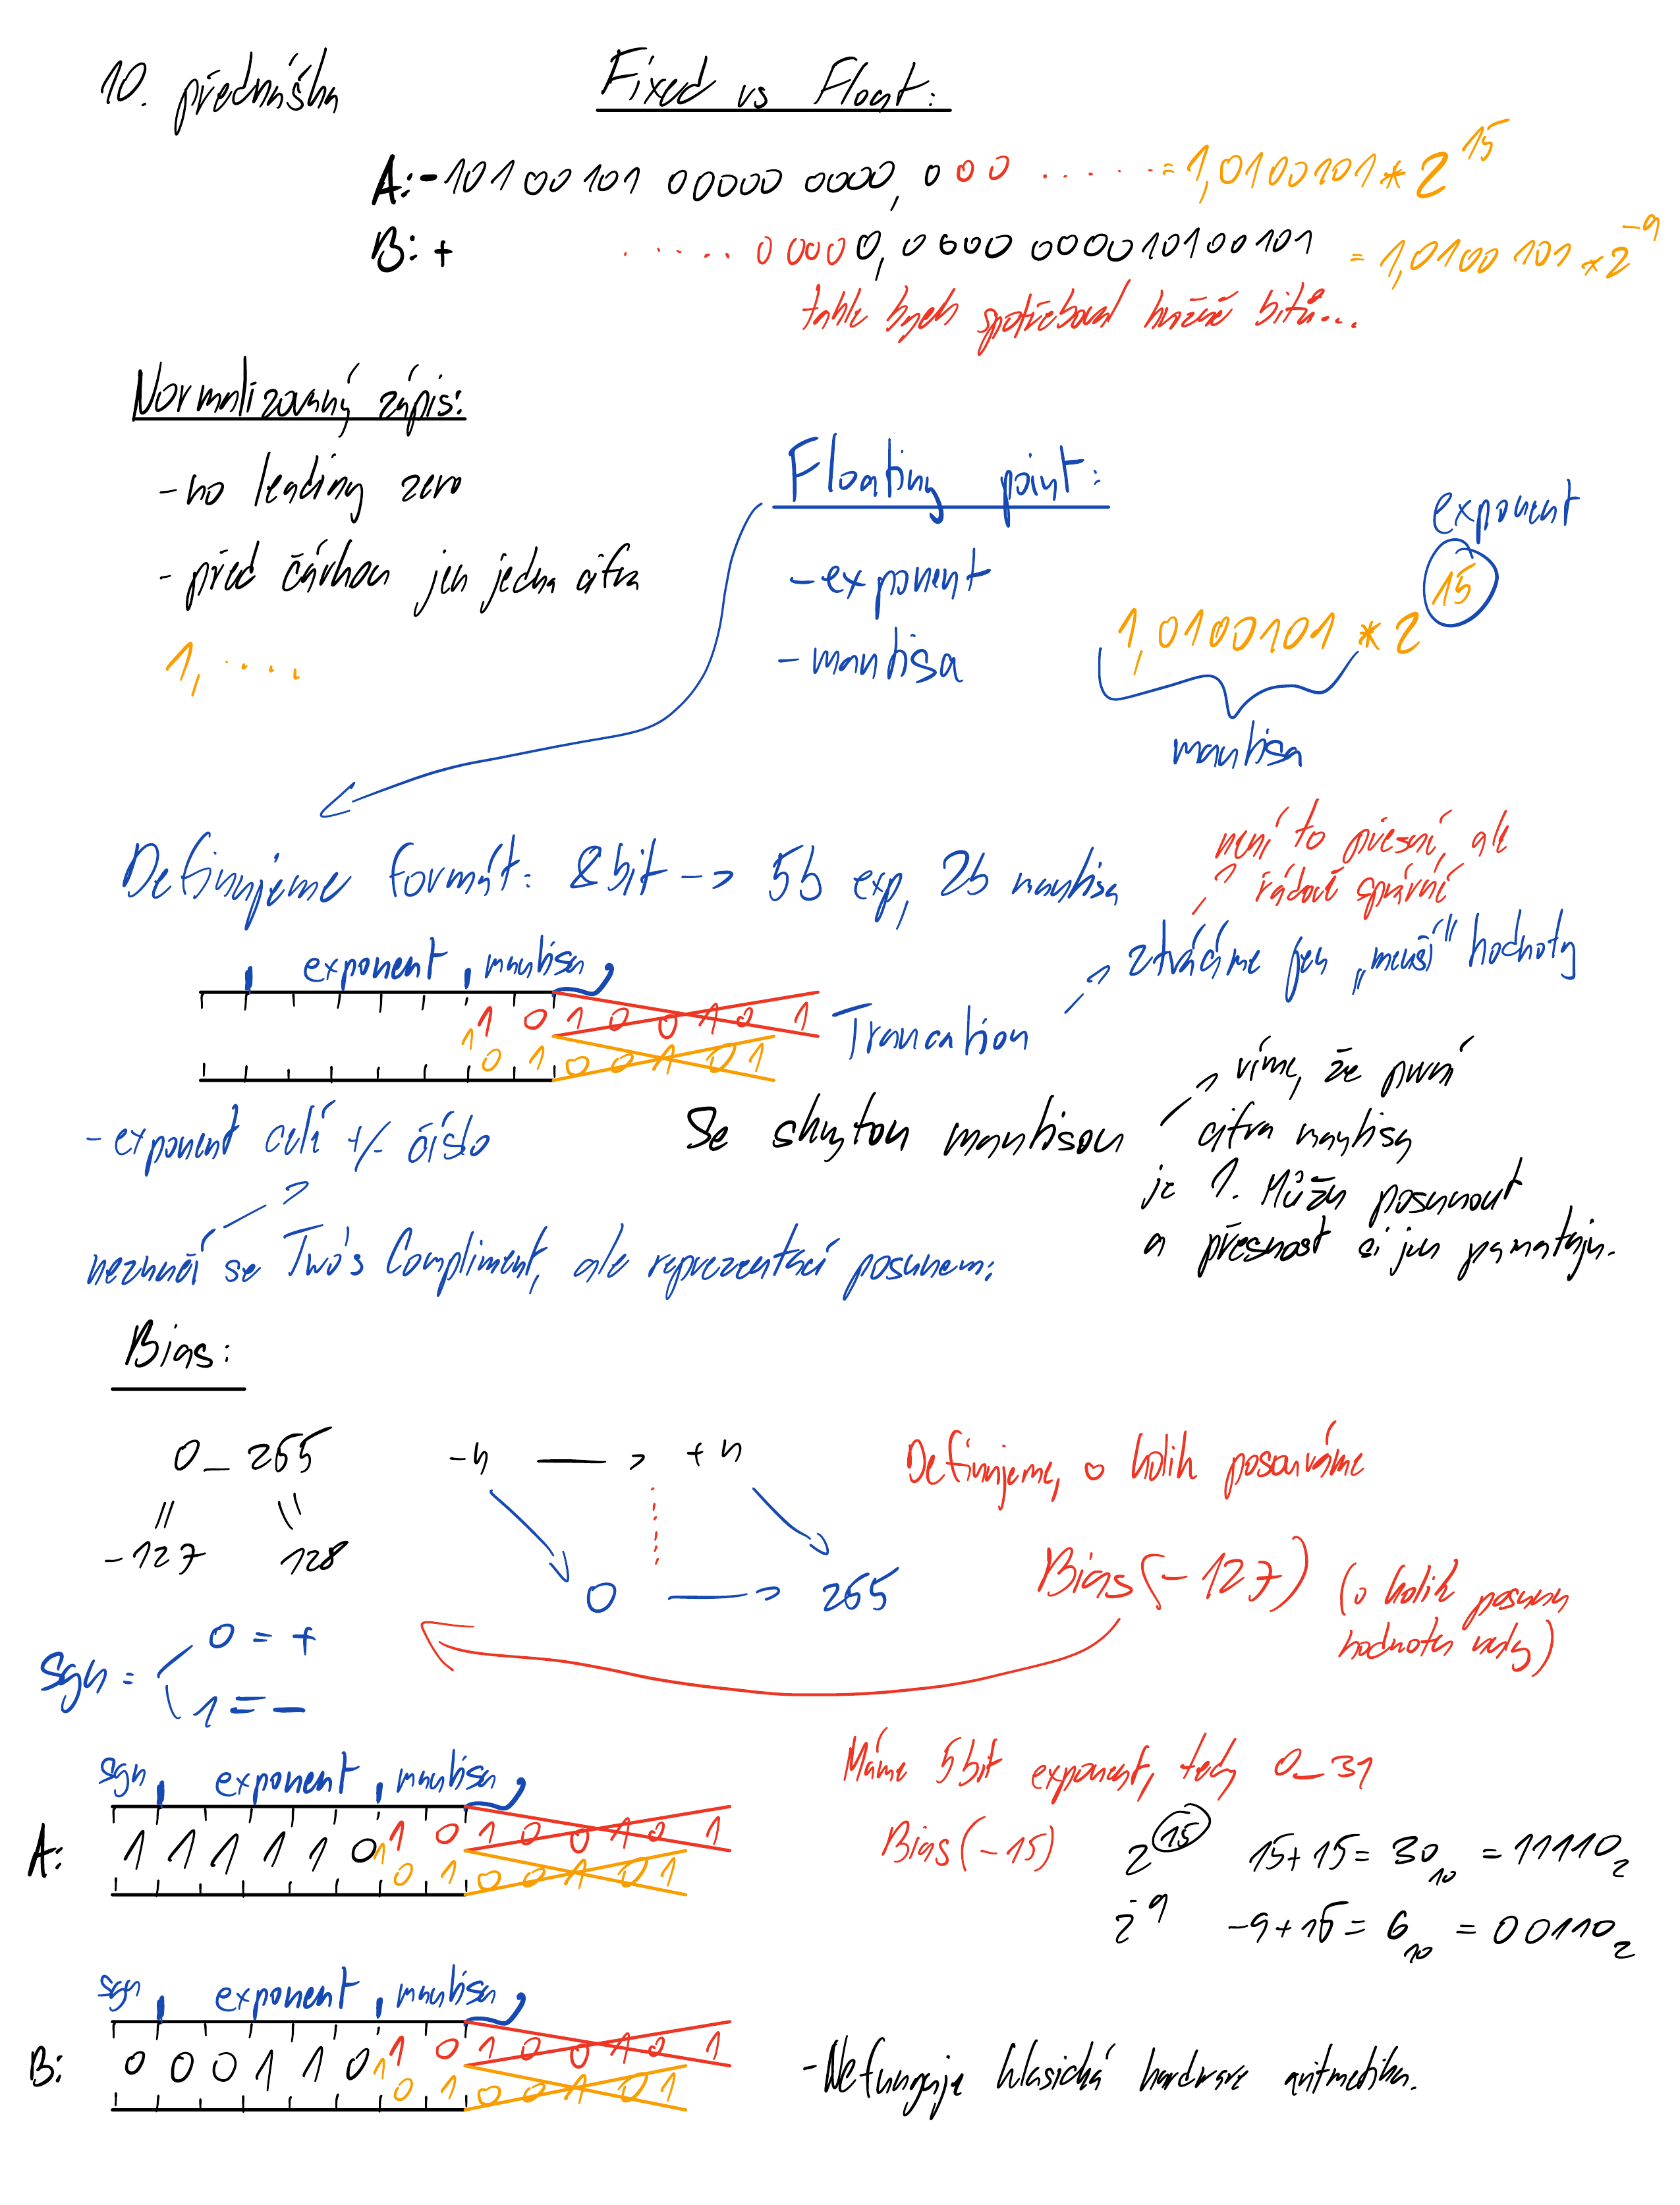 10. přednáška
Fixed vs Float:
A: - 10100101 00000 0000, 0 00 ..... = 1,0100101 * 2^15
B: + ..... 0000 0, 0000 000010100101 = 1,0100101 * 2^-9
takle bych spotřeboval hrozně bitů...
Normalizovaný zápis:
- no leading zero
- před čárkou jen jedna cifra
1, ....
Floating point:
- exponent
- mantisa
exponent
1,0100101 * 2^15
mantisa
Definujeme formát: 8bit -> 5b exp, 2b mantisa
není to přesné, ale
řádově správné
ztrácíme jen „menší" hodnoty
exponent, mantisa,
1 0 1 0 0 1 0 1
1 0 1 0 0 1 0 1
Truncation
- exponent celé +/- číslo
Se skrytou mantisou
víme, že první
cifra mantisy
je 1. Můžu posunout
a přesnost si jen pamatuju.
neznačí se Two's Compliment, ale reprezentací posunem:
Bias:
0 _ 255
-127 128
-n -> +n
0 -> 255
Definujeme, o kolik posouváme
Bias(-127) (o kolik posunu
hodnotu vždy)
sgn = 0 = +
1 = -
sgn, exponent, mantisa,
A: 1 1 1 1 1 0 1 0 1 0 0 1 0 1
1 0 1 0 0 1 0 1
Máme 5bit exponent, tedy 0_31
Bias(-15)
2^15 15+15 = 30_10 = 11110_2
2^-9 -9+15 = 6_10 = 00110_2
sgn, exponent, mantisa,
B: 0 0 0 1 1 0 1 0 1 0 0 1 0 1
1 0 1 0 0 1 0 1
- Nefunguje klasická hardware aritmetika.